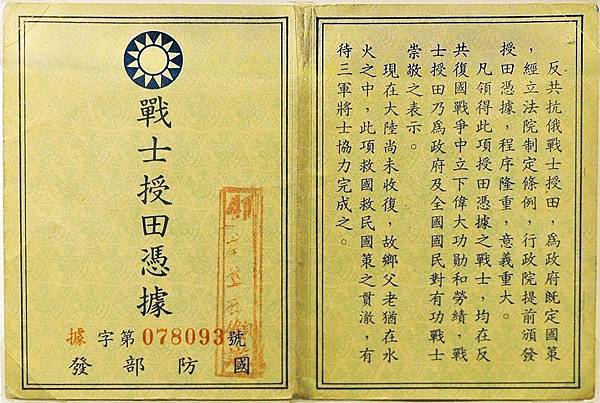 戰士授田憑據
據字第078093號
國防部發
反共抗俄戰士授田，爲政府既定國策
，經立法院制定條例，行政院提前頒發
授田憑據，程序隆重，意義重大。
凡領得此項授田憑據之戰士，均在反
共復國戰爭中立下偉大功勛和勞績，戰
士授田乃爲政府及全國國民對有功戰士
崇敬之表示。
現在大陸尚未收復，故鄉父老猶在水
火之中，此項救國救民國策之貫澈，有
待三軍將士協力完成之。